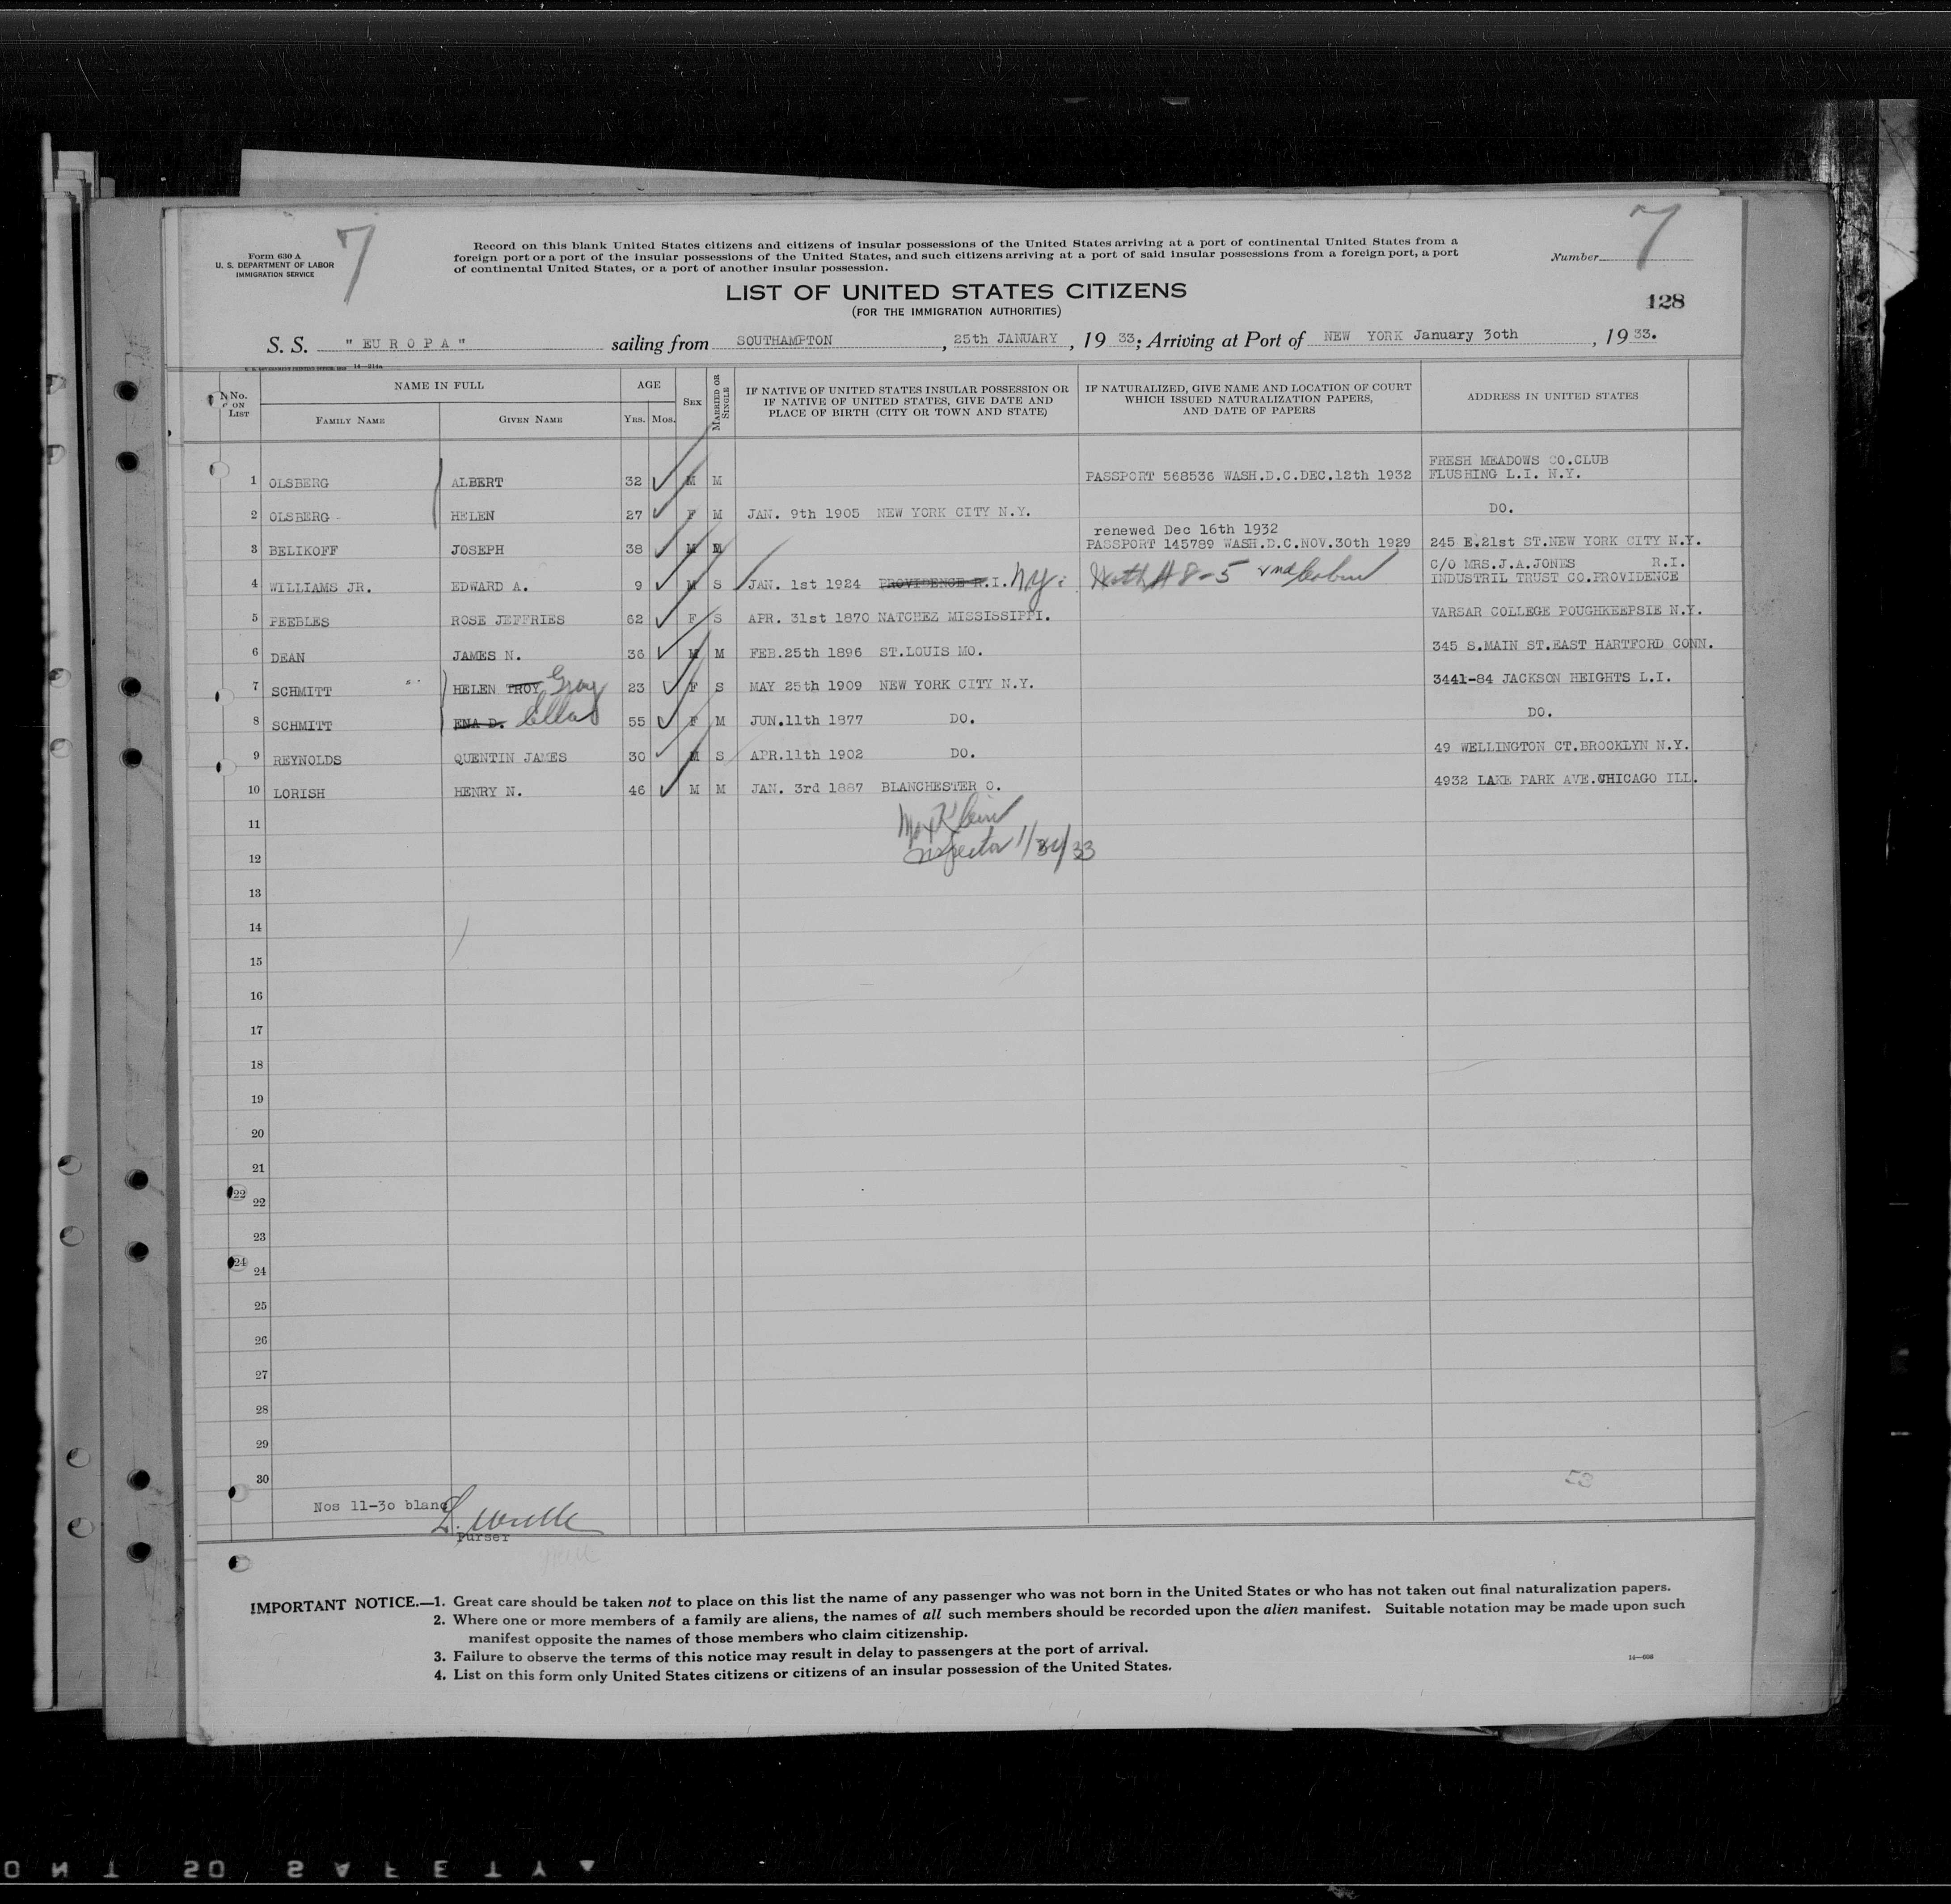 7
7
Form 630 A
U. S. DEPARTMENT OF LABOR
IMMIGRATION SERVICE
Record on this blank United States citizens and citizens of insular possessions of the United States arriving at a port of continental United States from a
foreign port or a port of the insular possessions of the United States, and such citizens arriving at a port of said insular possessions from a foreign port, a port
of continental United States, or a port of another insular possession.
Number
LIST OF UNITED STATES CITIZENS
(FOR THE IMMIGRATION AUTHORITIES)
128
S. S. "EUROPA" sailing from SOUTHAMPTON, 25th JANUARY, 19 33; Arriving at Port of NEW YORK January 30th, 19 33.
14—214a
No. ON LIST NAME IN FULL FAMILY NAME GIVEN NAME AGE YRS. MOS. SEX MARRIED OR SINGLE IF NATIVE OF UNITED STATES INSULAR POSSESSION OR IF NATIVE OF UNITED STATES, GIVE DATE AND PLACE OF BIRTH (CITY OR TOWN AND STATE) IF NATURALIZED, GIVE NAME AND LOCATION OF COURT WHICH ISSUED NATURALIZATION PAPERS, AND DATE OF PAPERS ADDRESS IN UNITED STATES
FRESH MEADOWS CO.CLUB
1 OLSBERG ALBERT 32 M M PASSPORT 568536 WASH.D.C.DEC.12th 1932 FLUSHING L.I. N.Y.
2 OLSBERG HELEN 27 F M JAN. 9th 1905 NEW YORK CITY N.Y. DO.
renewed Dec 16th 1932
3 BELIKOFF JOSEPH 38 M M PASSPORT 145789 WASH.D.C.NOV.30th 1929 245 E.21st ST.NEW YORK CITY N.Y.
C/O MRS.J.A.JONES R.I.
4 WILLIAMS JR. EDWARD A. 9 M S JAN. 1st 1924 PROVIDENCE R.I. N.Y. # 8-5 INDUSTRIL TRUST CO.PROVIDENCE
5 PEEBLES ROSE JEFFRIES 62 F S APR. 31st 1870 NATCHEZ MISSISSIPPI. VARSAR COLLEGE POUGHKEEPSIE N.Y.
6 DEAN JAMES N. 36 M M FEB.25th 1896 ST.LOUIS MO. 345 S.MAIN ST.EAST HARTFORD CONN.
7 SCHMITT HELEN TROY Gray 23 F S MAY 25th 1909 NEW YORK CITY N.Y. 3441-84 JACKSON HEIGHTS L.I.
8 SCHMITT ENA D. Ella 55 F M JUN.11th 1877 DO. DO.
9 REYNOLDS QUENTIN JAMES 30 M S APR.11th 1902 DO. 49 WELLINGTON CT.BROOKLYN N.Y.
10 LORISH HENRY N. 46 M M JAN. 3rd 1887 BLANCHESTER O. 4932 LAKE PARK AVE.CHICAGO ILL.
11 Max Klein
12 Inspector 1/30/33
13
14
15
16
17
18
19
20
21
22 22
23
24 24
25
26
27
28
29
30
53
Nos 11-30 blanc
Purser
IMPORTANT NOTICE.—1. Great care should be taken not to place on this list the name of any passenger who was not born in the United States or who has not taken out final naturalization papers.
2. Where one or more members of a family are aliens, the names of all such members should be recorded upon the alien manifest. Suitable notation may be made upon such
manifest opposite the names of those members who claim citizenship.
3. Failure to observe the terms of this notice may result in delay to passengers at the port of arrival.
4. List on this form only United States citizens or citizens of an insular possession of the United States.
14—698
SAFETY